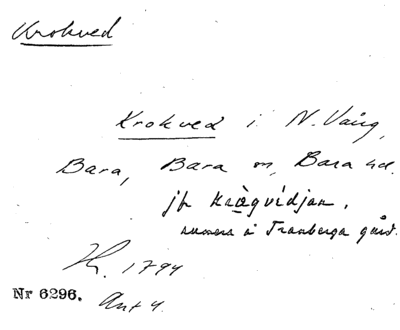 Krokved
Krokved i N. Vång,
Bara, Bara sn, Bara hd.
jfr kràgvídjan,
numera i Tranberga gård.
1794
Nr 6296. Ant 4.